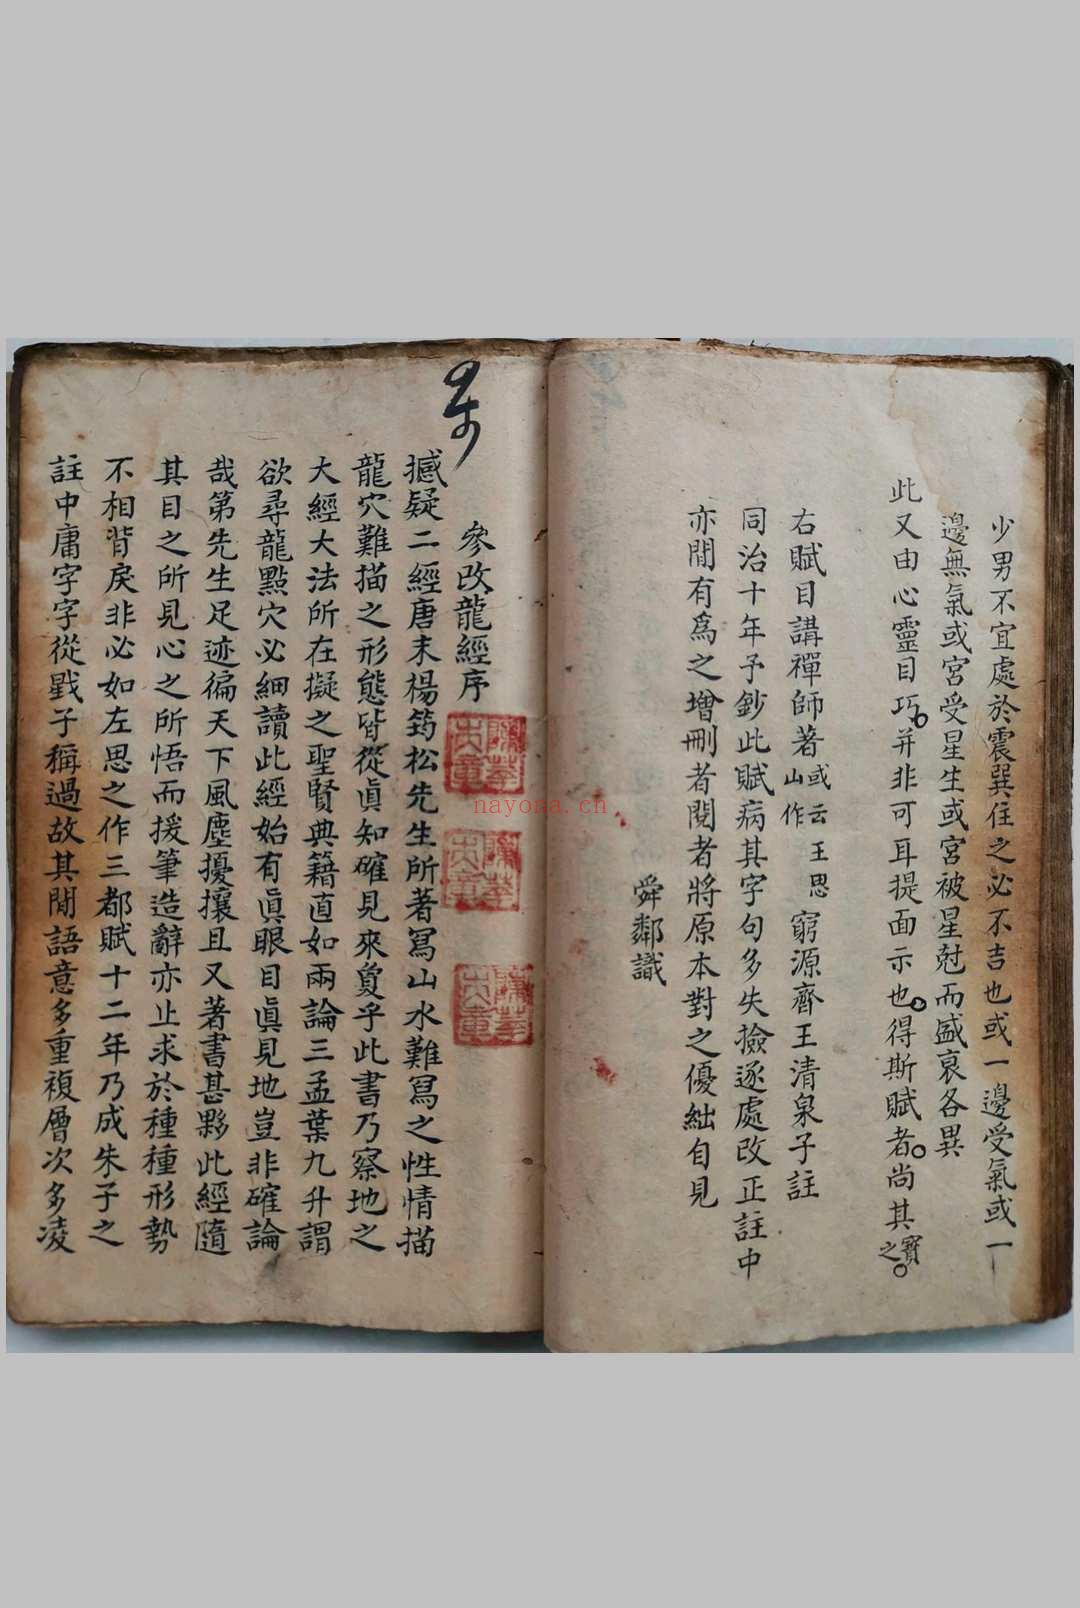 少男不宜處於震巽住之必不吉也或一邊受氣或一
邊無氣或宮受星生或宮被星尅而盛衰各異
此又由心靈目巧并非可耳提面示也得斯賦者尚其寶之
右賦目講禪師著或云王思山作窮源齊王清泉子註
同治十年予鈔此賦病其字句多失撿逐處改正註中
亦閒有爲之增刪者閱者將原本對之優絀自見
舜鄰識
參改龍經序
撼疑二經唐末楊筠松先生所著寫山水難寫之性情描
龍穴難描之形態皆從眞知確見來夐乎此書乃察地之
大經大法所在擬之聖賢典籍直如兩論三孟葉九升謂
欲尋龍點穴必細讀此經始有眞眼目眞見地豈非確論
哉第先生足迹徧天下風塵擾攘且又著書甚夥此經隨
其目之所見心之所悟而援筆造辭亦止求於種種形勢
不相背戾非必如左思之作三都賦十二年乃成朱子之
註中庸字字從戥子稱過故其閒語意多重複層次多凌
nayona.cn